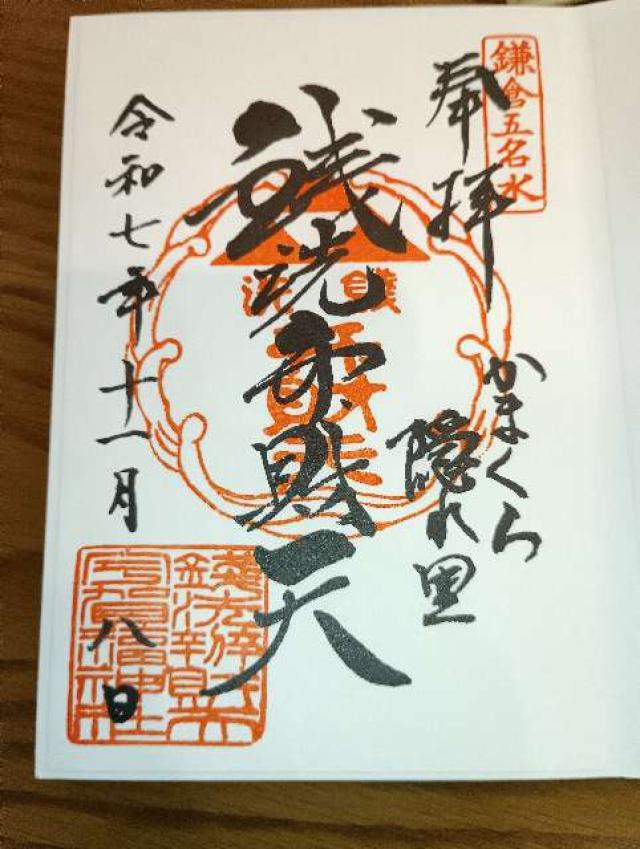 鎌倉五名水
奉拝
かまくら
隠れ里
銭洗弁財天
令和七年十一月
八日